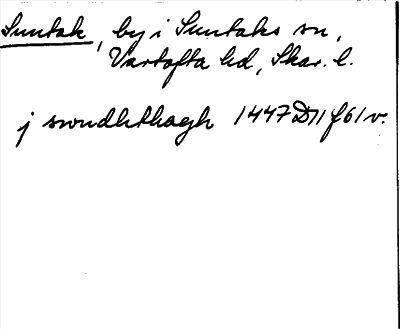 Suntak, by i Suntaks sn,
Vartofta hd, Skar. l.
j swndhthagh 1447 D 11 f 61 v.